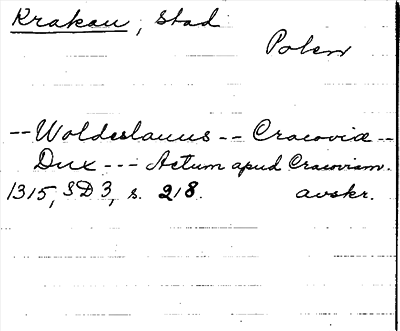 Krakau, stad
Polen
-- Woldeslauus -- Cracoviæ --
Dux --- Actum apud Cracoviam.
1315, SD 3, s. 218. avskr.